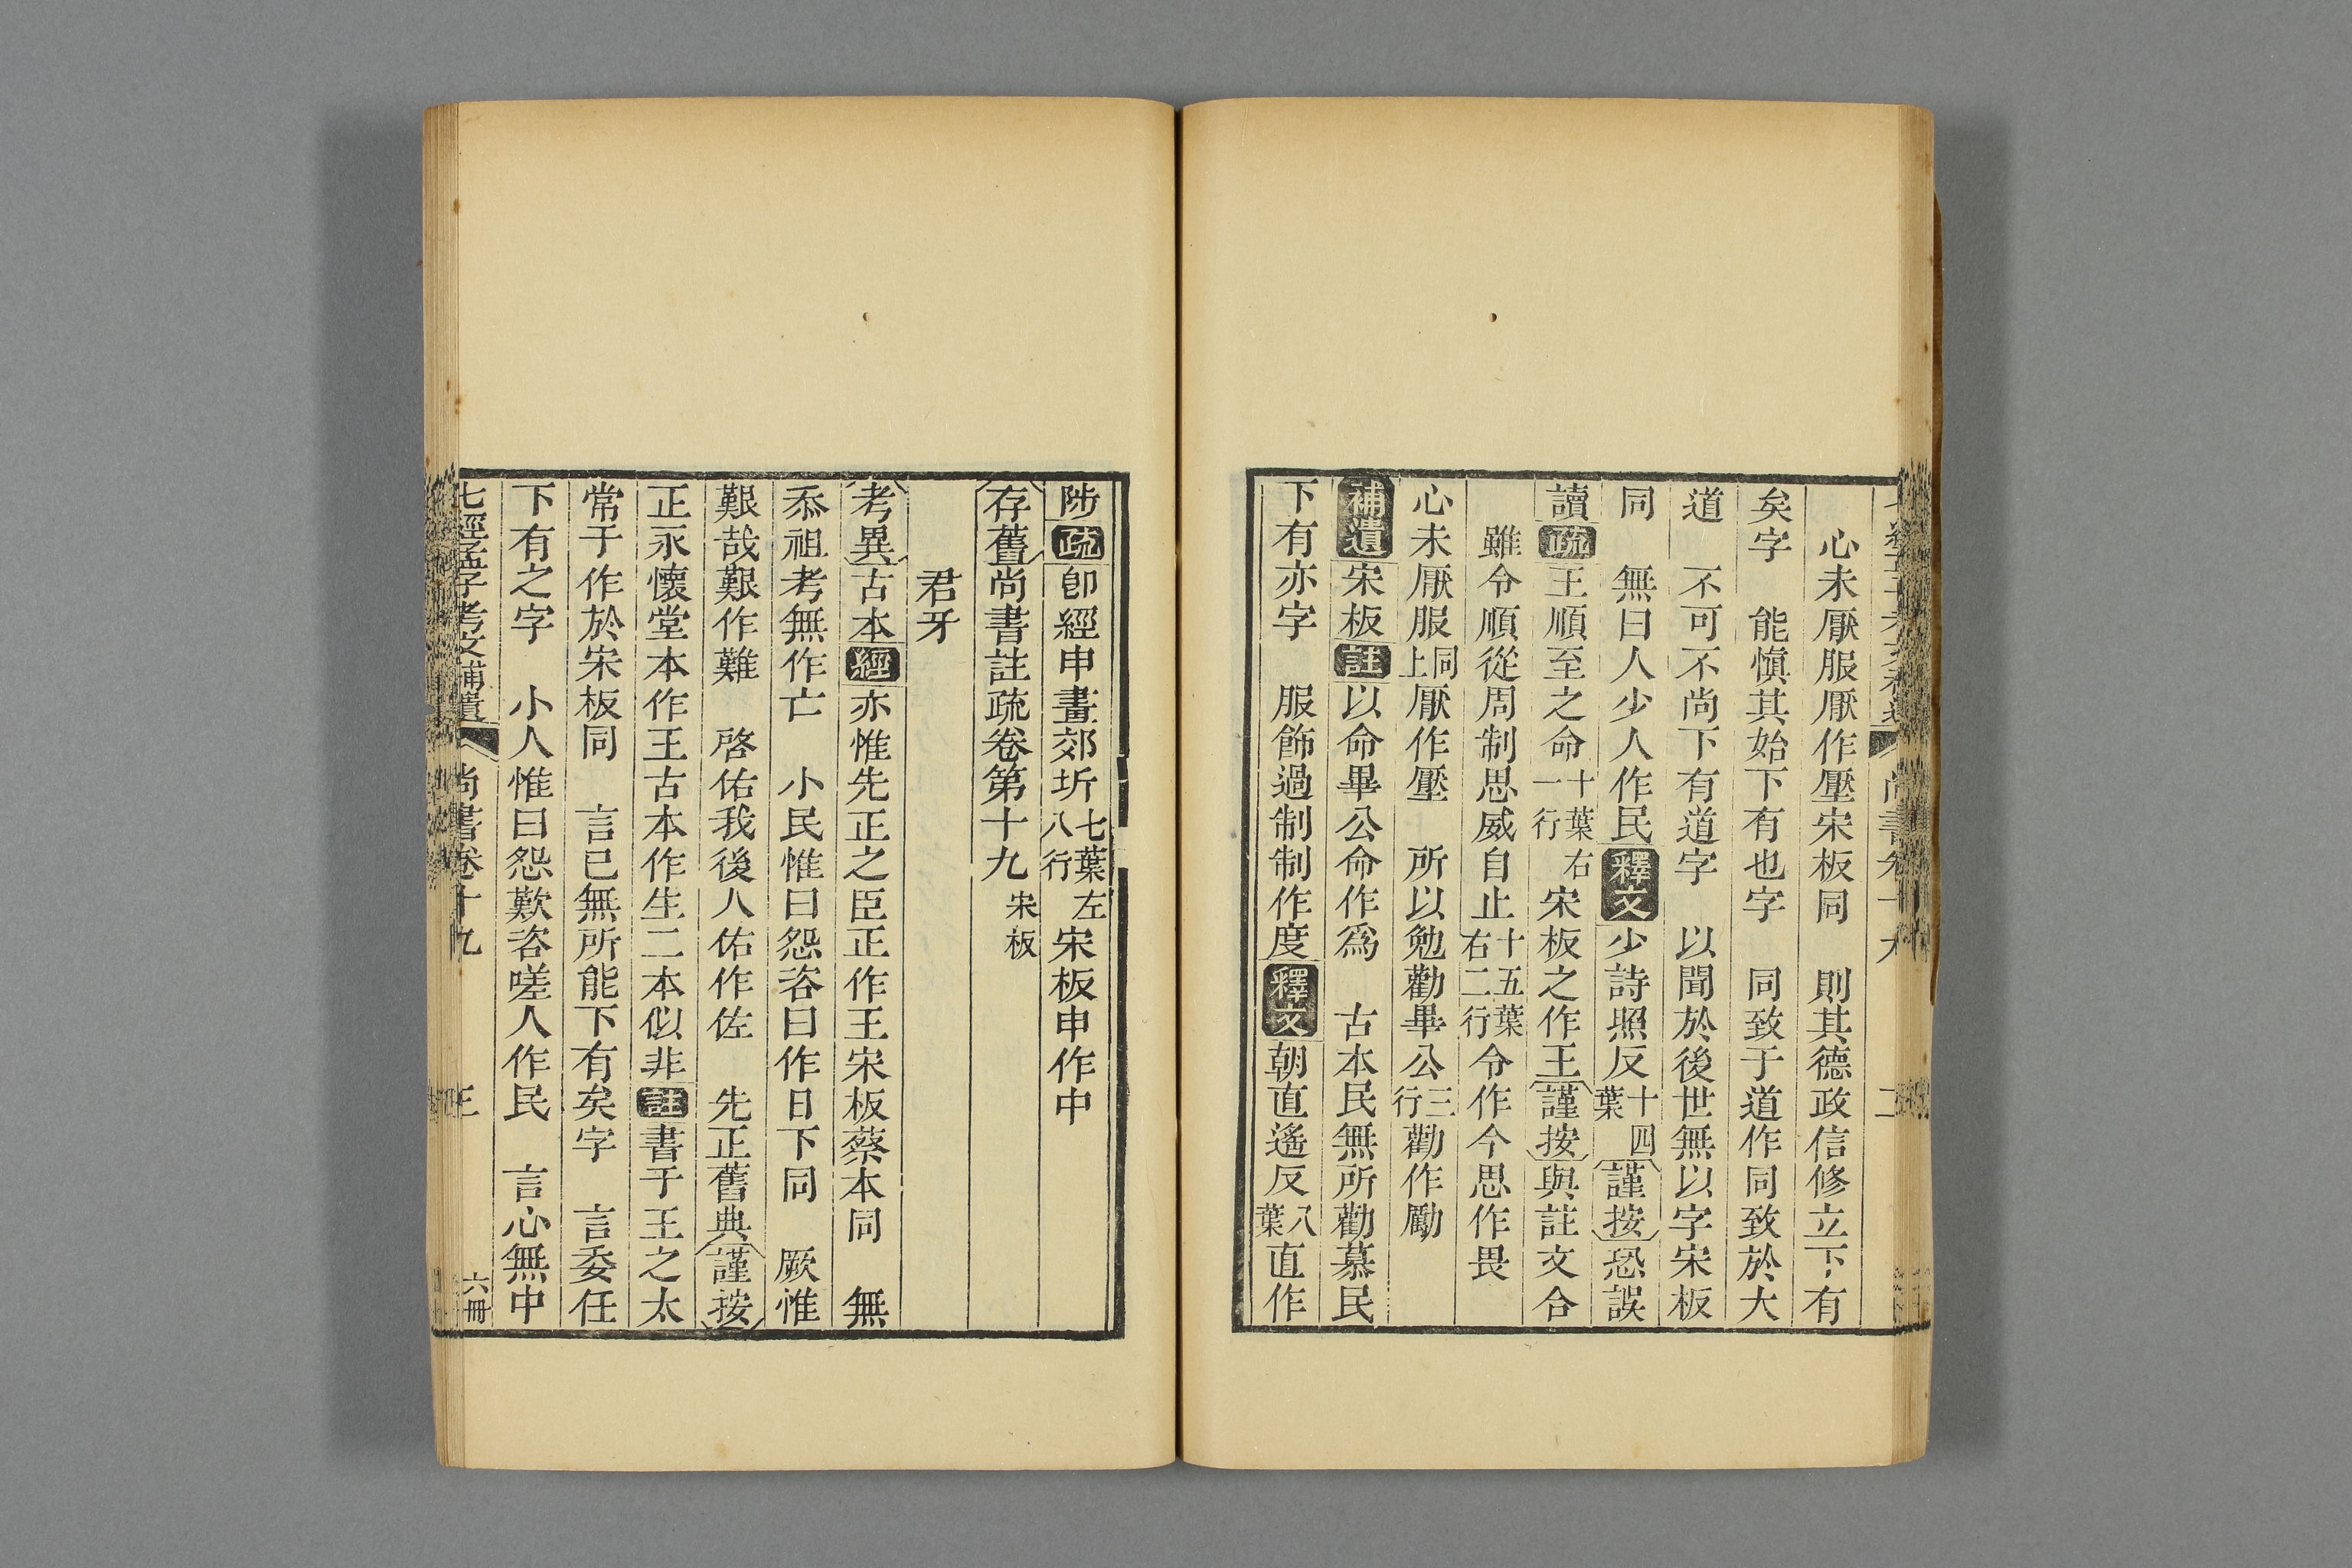 心未厭服厭作壓宋板同　則其德政信修立下有
矣字　能愼其始下有也字　同致于道作同致於大
道　不可不尚下有道字　以聞於後世無以字宋板
同　無曰人少人作民釋文少詩照反十四葉謹按恐誤
讀疏王順至之命十一葉右行宋板之作王謹按與註文合
雖令順從周制思威自止十五葉右二行令作今思作畏
心未厭服同上厭作壓　所以勉勸畢公三行勸作勵
補遺宋板註以命畢公命作爲　古本民無所勸慕民
下有亦字　服飾過制制作度釋文朝直遙反八葉直作
陟疏卽經申畫郊圻七葉左八行宋板申作中
存舊尚書註疏卷第十九宋板
君牙
考異古本經亦惟先正之臣正作王宋板蔡本同　無
忝祖考無作亡　小民惟曰怨咨曰作日下同　厥惟
艱哉艱作難　啓佑我後人佑作佐　先正舊典謹按
正永懷堂本作王古本作生二本似非註書于王之太
常于作於宋板同　言已無所能下有矣字　言委任
下有之字　小人惟曰怨歎咨嗟人作民　言心無中
七經孟子考文補遺　尚書卷十九　三　六冊